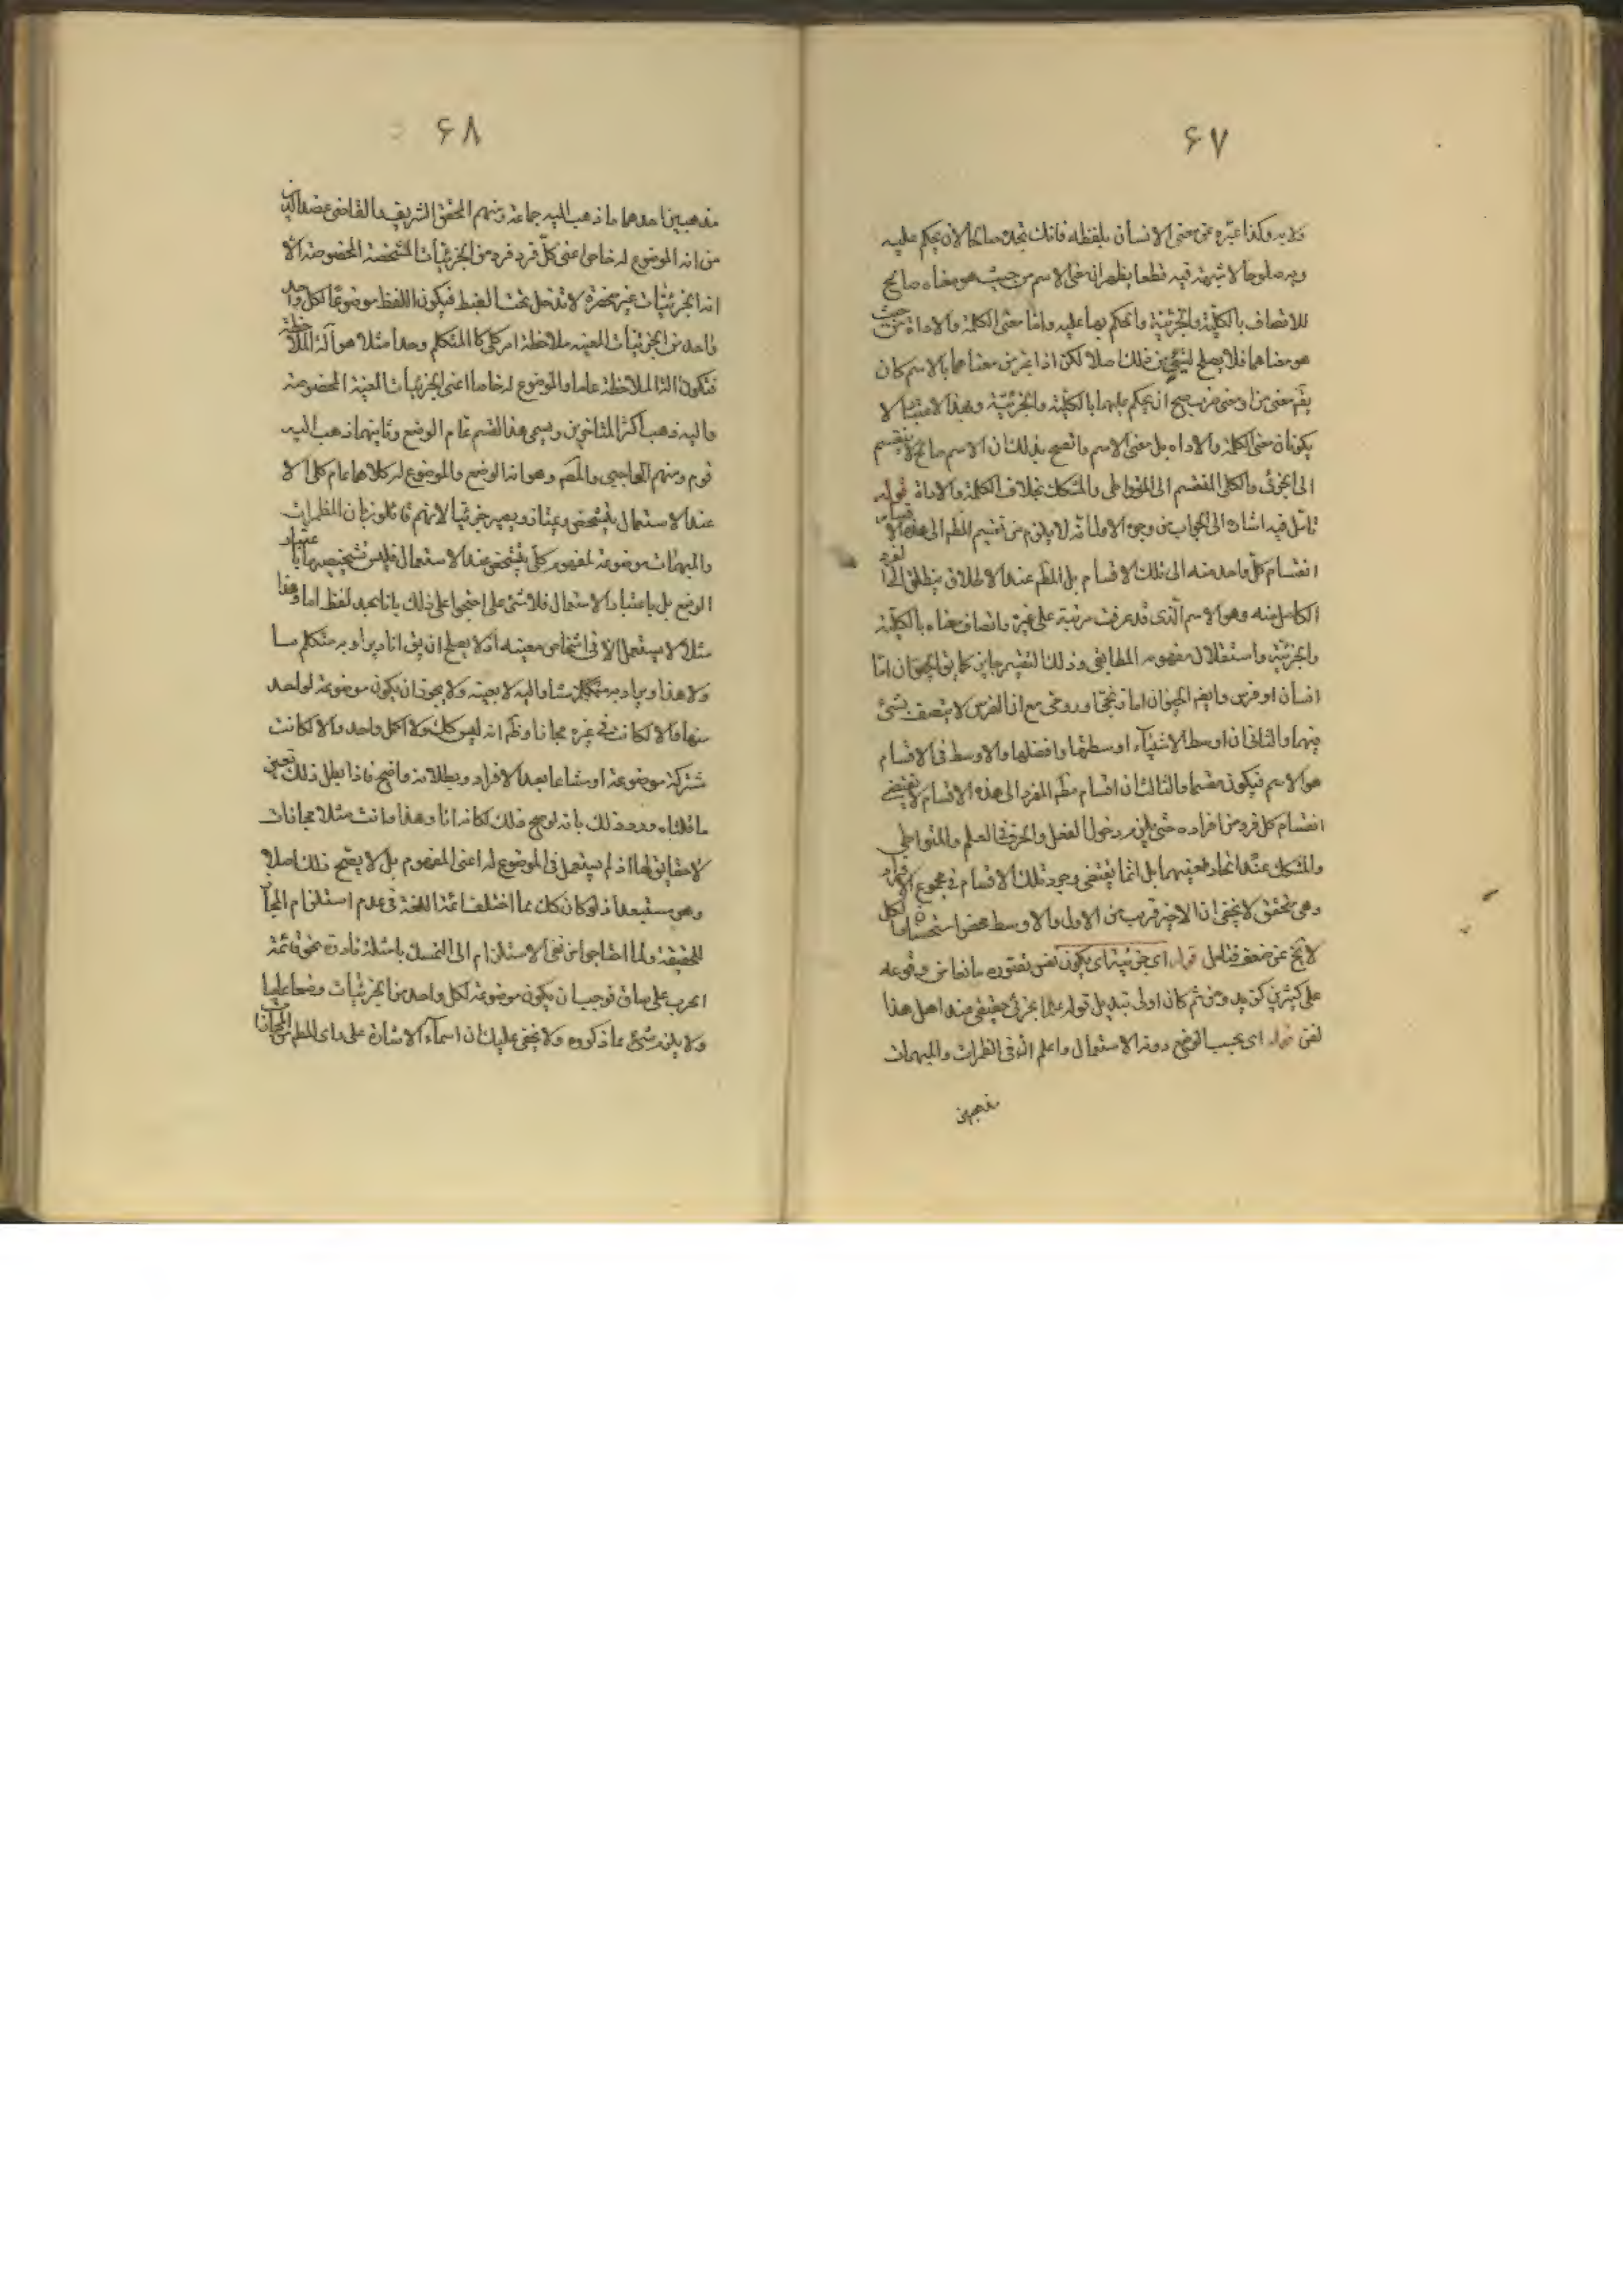 ۶۷
ولابد وكذا عبّره عن معنى الانسان بلفظه فانك تجده صالحا لان يحكم عليه
وبه صلوحا لا شبهة فيه قطعا يظهر ان معنى الاسم من حيث هو معناه صالح
للاتصاف بالكلية والجزئية والحكم بهما عليه واما معنى الكلمة والاداة من حيث
هو معناهما فلا يصلح لشئ من ذلك اصلا لكن اذا عبر عن معناهما بالاسم كان
يقم معنى من او معنى ضرب صح ان يحكم عليهما بالكلية والجزئية وبهذا الاعتبار لا
يكونان معنى الكلمة والاداه بل معنى الاسم واتضح بذلك ان الاسم صالح لا ينقسم
الى الجزئى والكلى المنقسم الى المتواطى والمشكك بخلاف الكلمة والاداة قوله
تامل فيه اشارة الى الجواب من وجوه الاول انه لا يلزم من تقسيم المظم الى هذه الاقسام
انقسام كل واحد منه الى تلك الاقسام بل المظم عند الاطلاق ينطلق الى الفرد
الكامل منه وهو الاسم الذى قد عرفت مرتبة على غيره واتصاف معناه بالكلية
والجزئية واستقلال مفهومه المطابقى وذلك التقسيم جايز كما يق الحيوان اما
انسان او فرس وايضم الحيوان اما زنجى او رومى مع ان الفرس لا يتصف بشئ
منهما والثانى ان اوسط الاشيآء اوسطها وافضلها والاوسط فى الاقسام
هو الاسم فيكون مقسما والثالث ان اقسام مظم المفرد الى هذه الاقسام لا يقتضى
انقسام كل فرد من افراده حتى يلزم دخول الفعل والحرف فى العلم والمتواطى
والمشكك عند اتحاد معينيهما بل انما يقتضى وجود تلك الاقسام فى مجموع الافراد
وهى متحقق لا يخفى ان الاخير قريب من الاول والاوسط محض استحسان والكل
لا يخ عن ضعف فتامل قوله اى جزئية اى يكون نفس تصوره مانعا من وقوعه
على كثيرين كزيد ومن ثم كان اولى تبديل قوله علما بجزئى حقيقى عند اهل هذا
لفن قوله اى بحسب الوضع دون الاستعمال واعلم ان فى المظمرات والمبهمات
مذهبين
۶۸
مذهبين احدهما ما ذهب اليه جماعة ومنهم المحقق الشريف والقاضى عضد الدين
من ان الموضوع له خاص اعنى كل فرد فرد من الجزئيات المشخصة المخصوصة الا
ان الجزئيات غير منحصرة لا تدخل تحت الضبط فيكون اللفظ موضوعا لكل واحد
واحد من الجزئيات المعينه بملاحظة امر كلى كالمتكلم وحده مثلا هو آلة الملاحظة
فتكون الة الملاحظة عاما والموضوع له خاصا اعنى الجزئيات المعينة المخصوصة
واليه ذهب اكثر المتاخرين ويسمى هذا القسم عام الوضع وثانيهما ذهب اليه
قوم ومنهم الحاجبى والمصم وهو ان الوضع والموضوع له كلاهما عام كلى الا
عند الاستعمال يتشخص ويمتاز ويصير جزئيا لانهم قائلون بان المظمرات
والمبهمات موضوعة لمفهوم كلى يتشخص عند الاستعمال فليس تشخيصهما باعتبار
الوضع بل باعتبار الاستعمال فلا شئ على احتجوا على ذلك بانا نجد لفظ انا وهذا
مثلا لا يستعمل الا فى اشخاص معينه اذ لا يصلح ان يق انا ويراد به متكلم ما
ولا هذا ويراد به مشار اليه لا بعينه ولا يجوز ان يكون موضوعة لواحد
منها والا لكانت فى غيره مجازا وظم انه ليس كك ولا لكل واحد والا لكانت
مشتركة موضوعة اوضاعا بعدد الافراد وبطلانه واضح فاذا بطل ذلك تعين
ما قلناه ورد ذلك بانه لو صح ذلك لكان انا وهذا وانت مثلا مجازات
لا حقايق لها اذ لم يستعمل فى الموضوع له اعنى المفهوم بل لا يصح ذلك اصلا
وهو مستبعد اذ لو كان كك لما اختلف ائمة اللغة فى عدم استلزام المجاز
للحقيقة ولما احتاجوا من نفى الاستلزام الى التمسك بامثلة نادرة نحو قامت
الحرب على ساق فوجب ان يكون موضوعة لكل واحد من الجزئيات وضعا عاما
ولا يلزم شئ مما ذكروه ولا يخفى عليك ان اسمآء الاشارة على راى المظم